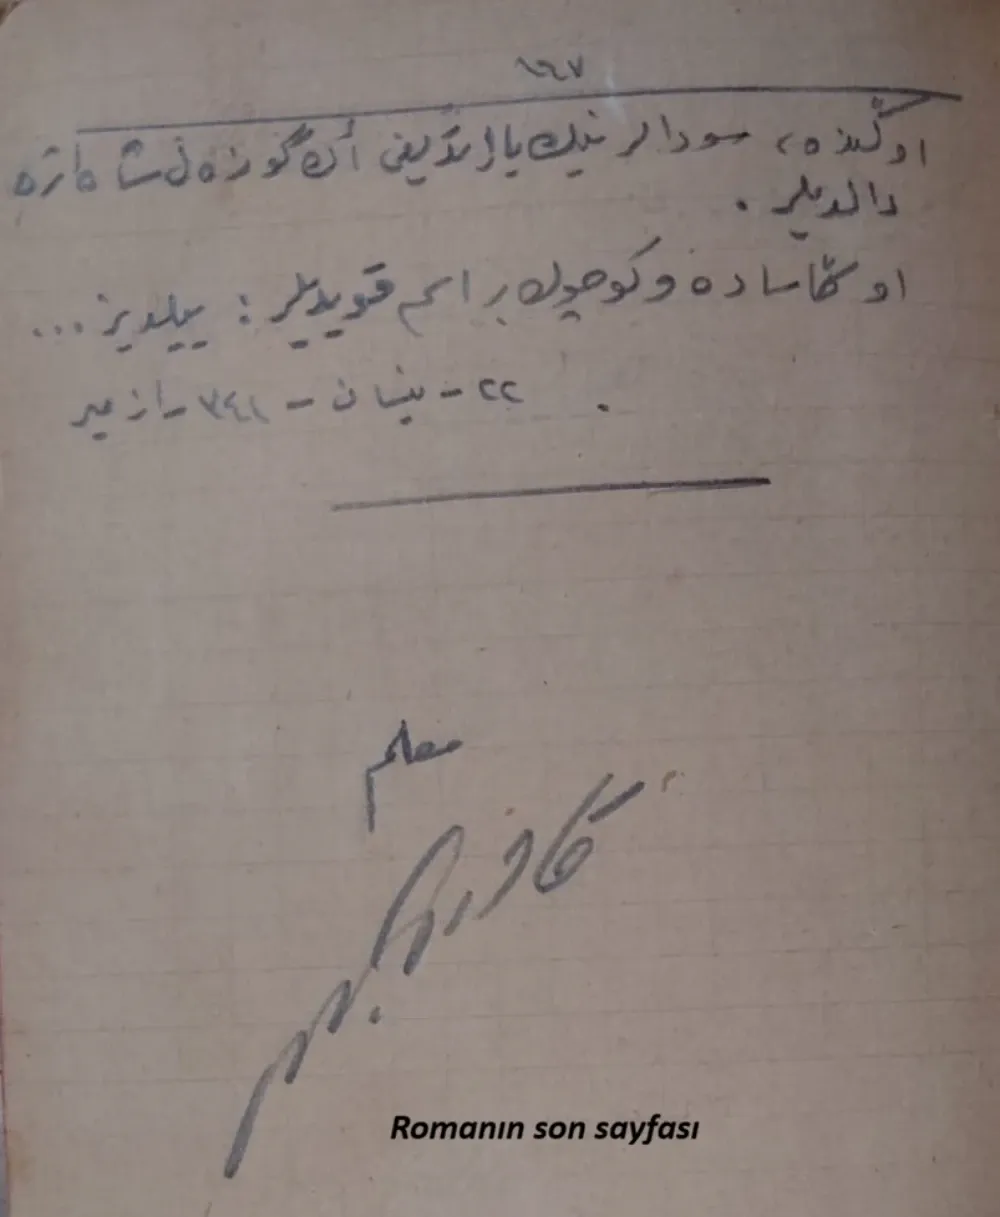 اوڭنده، سودالرينك ياراتديغی أڭ گوزەل شاه اثره
دالديلر.
اوڭا ساده و كوچوك بر اسم قويديلر: ييلديز...
٢٢ - نيسان - ٣٤١ - ازمير
معلم
Romanın son sayfası